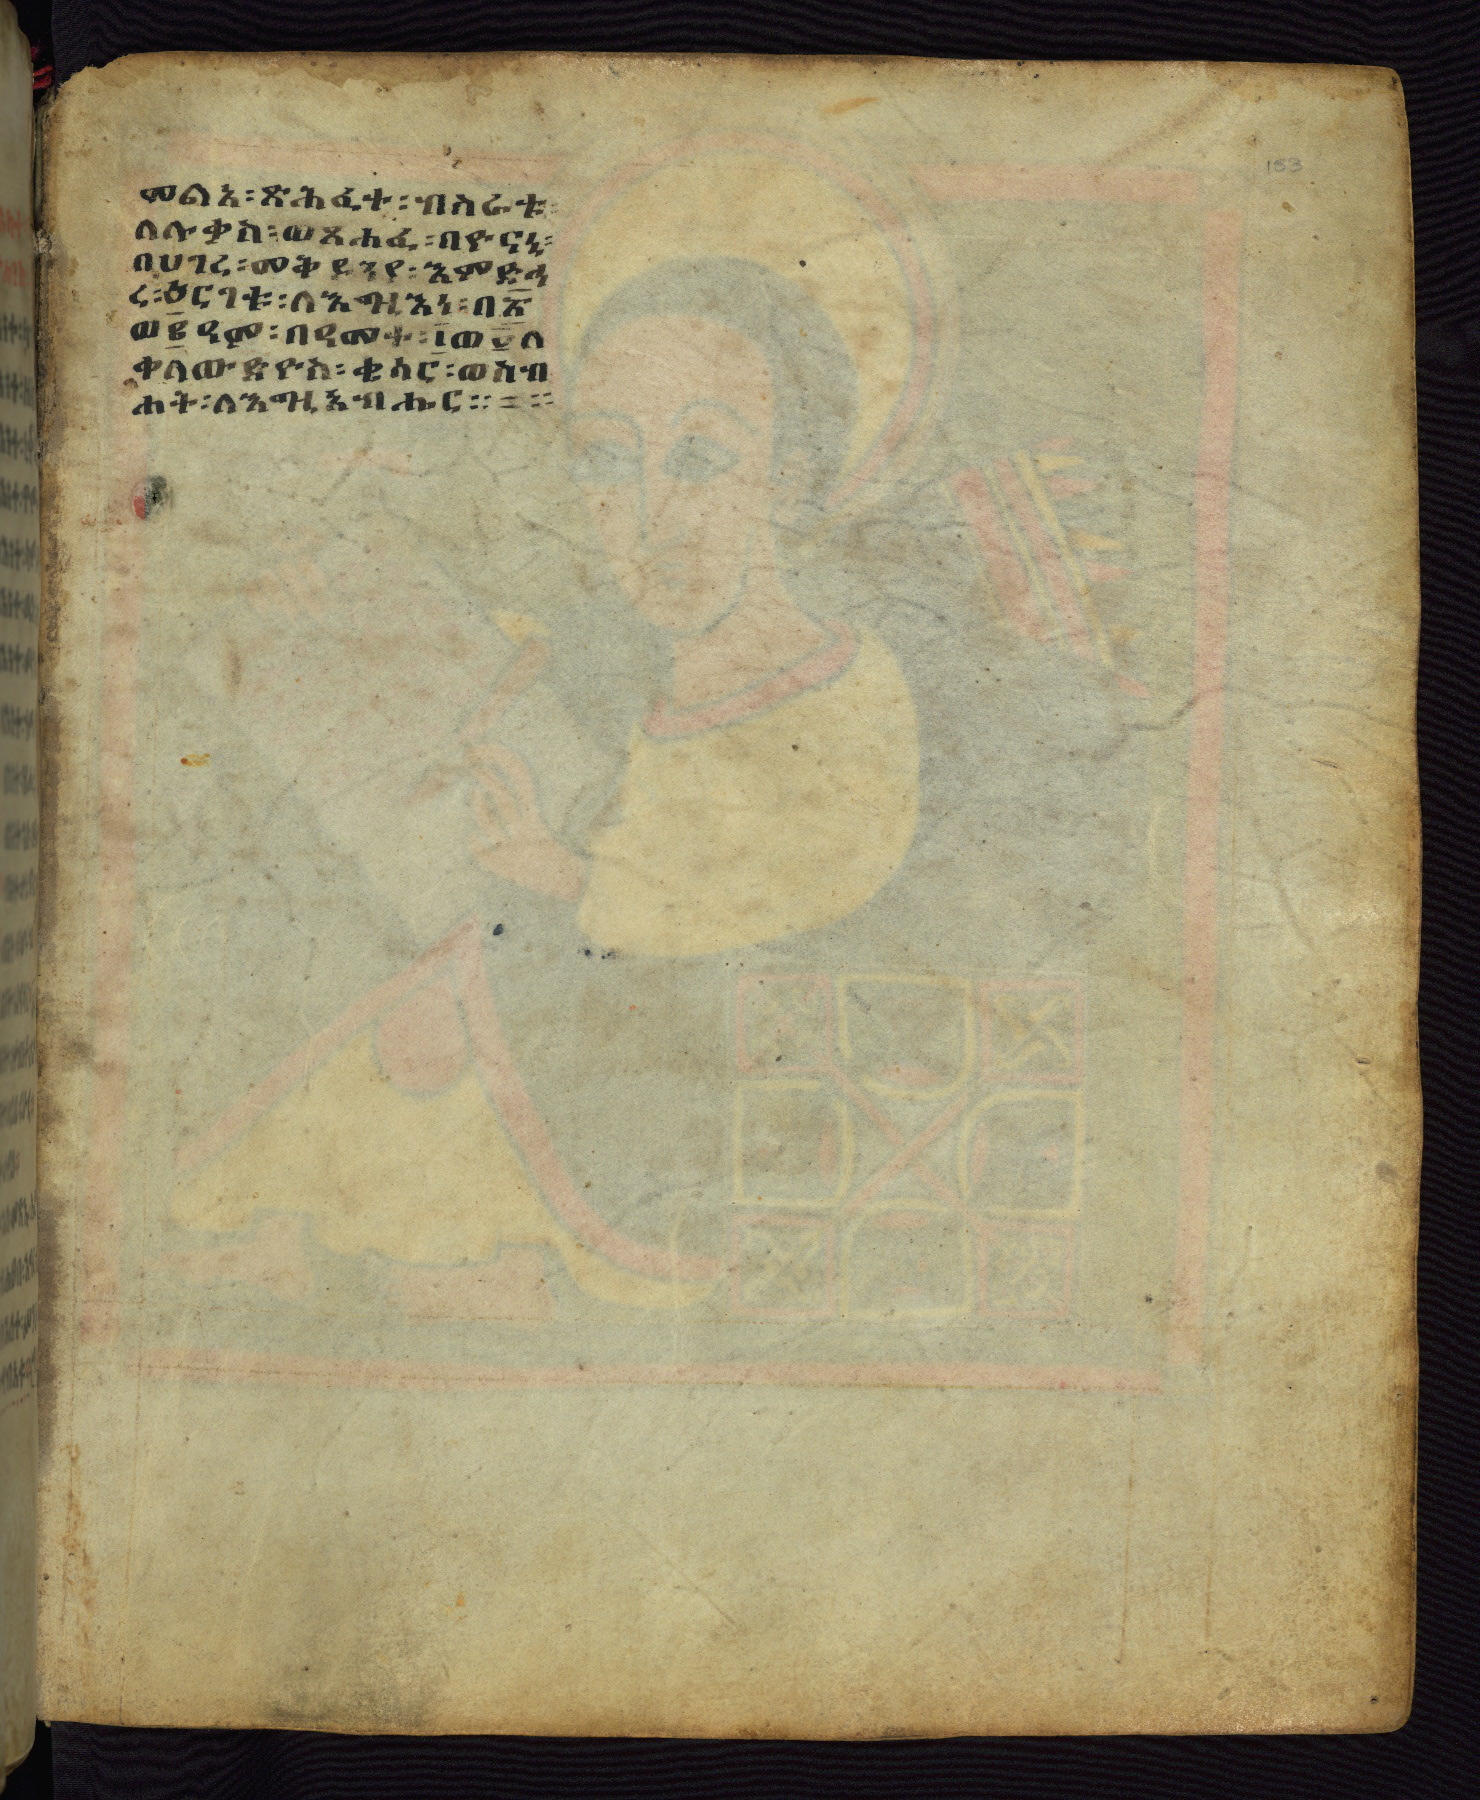 መልአ፡ጽሕፈተ፡ብስራቱ፡
ለሉቃስ፡ወጸሐፈ፡በዮናኒ፡
በሀገረ፡መቅዶንየ፡እምድኅ
ረ፡ዕርገቱ፡ለእግዚእነ፡በ፳
ወ፪ዓም፡በዓመት፡፲ወ፬ለ
ቀላውድዮስ፡ቄሳር፡ወስብ
ሐት፡ለእግዚአብሔር፡፡=፡፡
153